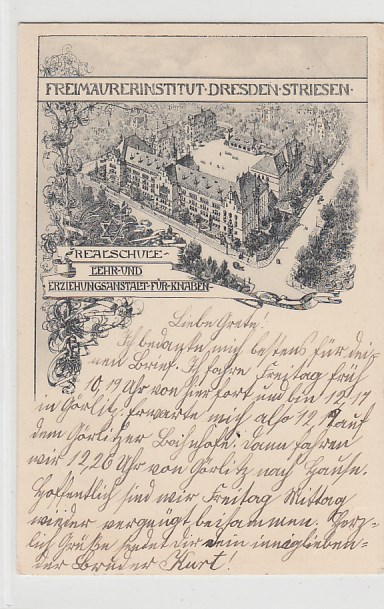 FREIMAURERINSTITUT·DRESDEN·STRIESEN·
REALSCHULE-
LEHR-UND
ERZIEHUNGSANSTALT·FÜR·KNABEN
Liebe Grete!
Ich bedanke mich bestens für dei-
nen Brief. Ich fahre Freitag früh
10,19 Uhr von hier fort und bin 12,17
in Görlitz. Erwarte mich also 12,17 auf
dem Görlitzer Bahnhofe. Dann fahren
wir 12,26 Uhr von Görlitz nach Hause.
Hoffentlich sind wir Freitag Mittag
wieder vergnügt beisammen. Herz-
lich Grüße sendet Dir Dein inniglieben-
der Bruder Kurt!